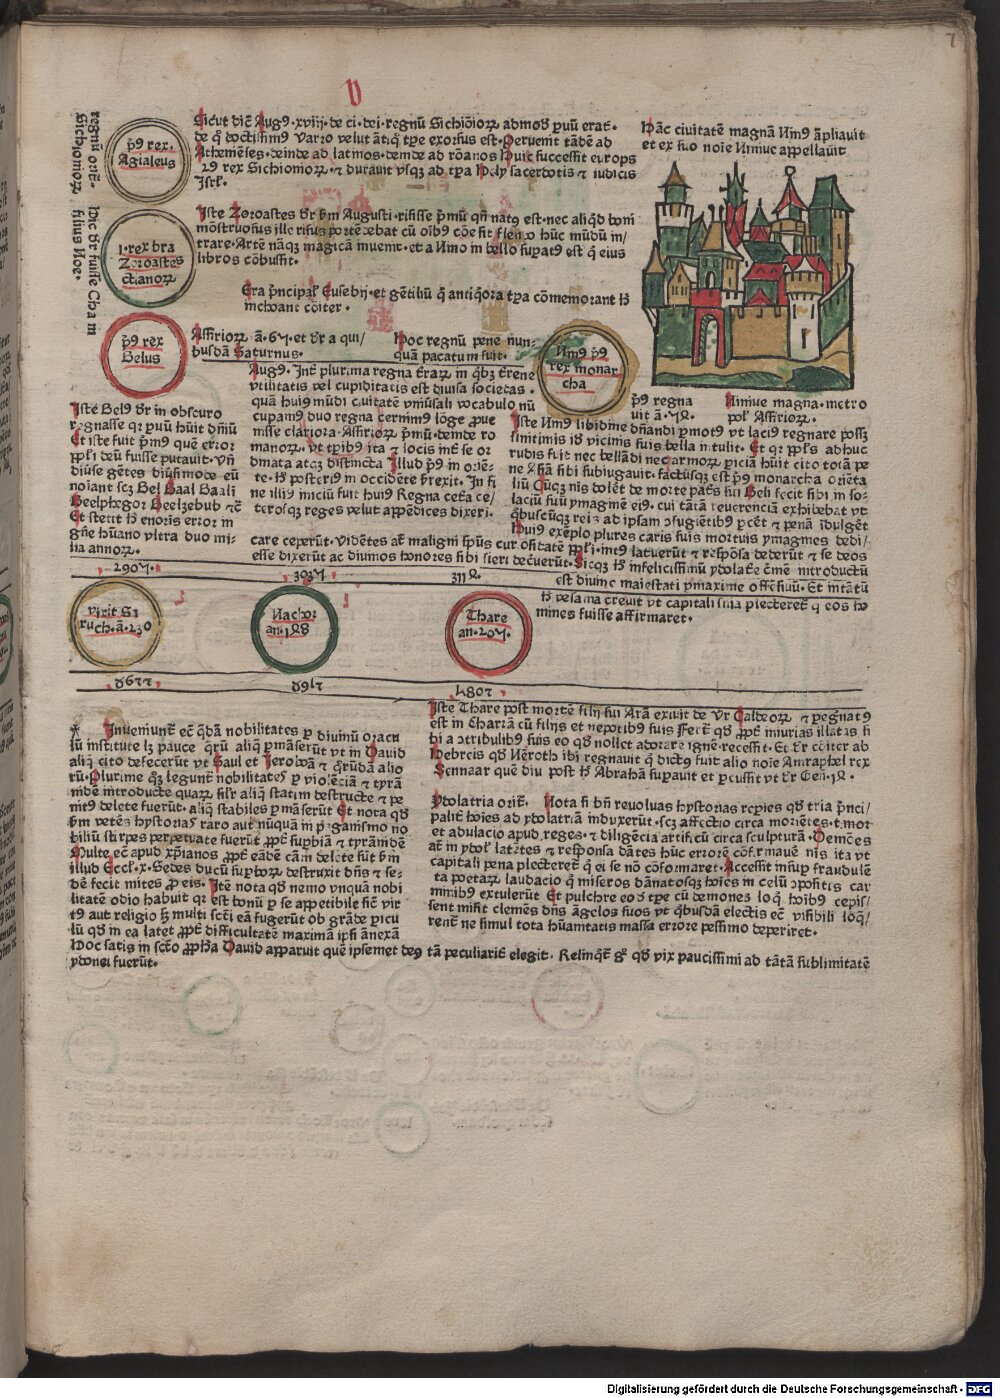 V
7
regnū orit̄.
Sichioniorꝝ
p̄9 rex.
Agialeus
Sicut dic̄ Aug9.xviij.de ci.dei.regnū Sichiōiorꝝ admoꝺ̄ ꝑuū erat.
de q̄ doctissim9 Varro velut āt̄iq̄ tp̄e exorsus est. Peruenit tādē ad
Athenie̅ses.deinde ad latinos.deinde ad rōanos Huic successit europs
29 rex Sichionioꝝ.⁊ durauit vsqꝫ ad tp̄a Hely sacerdotis ⁊ iudicis
Isrl̄.
Hāc ciuitatē magnā Nin9 āpliauit
et ex suo noīe Niniue appellauit
Hic dr̄ fuisse Cham
filius Noe.
1.rex bra
Zoroastes
ctianoꝝ
Iste Zoroastes dr̄ bm̄ Augusti.risisse p̄mū qn̄ nat9 est.nec aliq̄d boni
mōstruosus ille risus portēdebat cū oīb9 cōe sit fletu9 hūc mūdū in/
trare.Artē nāqꝫ magicā inuenit.et a Nino in bello suꝑat9 est q̄ eius
libros cōbussit.
Era p̄ncipal̄ Eusebij.et gētiliū q̄ antiq̄ora tp̄a cōmemorant h̄
inchoant cōiter.
p̄9 rex
Belus
Assirioꝝ ā.67.et dr̄ a qui/
busdā Saturnus.
Hoc regnū pene nun-
quā pacatum fuit.
Nin9 p̄9
rex monar
cha
p̄9 regna
uit ā.72.
Niniue magna.metro
pol̄ Assirioꝝ.
Aug9.Int̄ plurima regna t̄raꝝ in q̄bꝫ t̄rene
vtilitatis vel cupiditatis est diuisa societas.
quā hui9 mūdi ciuitatē vniūsali vocabulo nū
cupam9 duo regna cernim9 lōge ꝓue
nisse clariora.Assirioꝝ p̄mū.deinde ro
manoꝝ.vt tp̄ib9 ita ⁊ locis int̄ se or
dinata atqꝫ distincta Illud p̄9 in oriē-
te.h̄ posteri9 in occidēte srexit.In fi
ne illi9 iniciū fuit hui9 Regna cet̄a ce/
terosqꝫ reges velut appēdices dixeri.
Iste Bel9 dr̄ in obscuro
regnasse qꝛ ꝑuū huit dn̄iū
Et iste fuit p̄m9 quē error
ppl̄i deū fuisse putauit.vn̄
diūse gētes diūsimode eū
noiant scꝫ Bel Baal Baali
Beelphegor Beelzebub ⁊c̄
Et stetit h̄ enoris error in
gn̄e hūano vltra duo mi-
lia annoꝝ.
Iste Nin9 libidine dn̄andi ꝑmot9 vt laci9 regnare possꝫ
finitimis id̄ vicinis suis bella intulit. Et qꝛ ppl̄s adhuc
rudis fuit nec bellādi necarmoꝝ ꝑiciā huit cito totā pe
ne Asiā sibi subiugauit.factusqꝫ est p̄9 monarcha oriēta
liū Cūqꝫ nis dolēt de morte pat̄s sui Beli fecit sibi in so-
laciū sui ymaginē ei9.cui tātā reuerenciā exhibebat vt
q̄buscūqꝫ reis ad ipsam ꝯfugiētib9 ꝑcēt ⁊ penā idulgēt
Hui9 exēplo plures caris suis mortuis ymagines dedi/
care ceperūt.Vidētes at̄ maligni sp̄us curositatē ppl̄i.int9 latuerūt ⁊ respōsa dederūt ⁊ se deos
esse dixerūt ac diuinos honores sibi fieri dec̄uerūt.Sicqꝫ h̄ infelicissimū ydolat̄e c̄mē introductū
est diuine maiestati ꝑmaxime offēsiuū.Et intātū
h̄ vesania creuit vt capitali snīa plecteret̄ q̄ eos ho
mines fuisse affirmaret.
2907.
3037
3112.
vixit Sa
ruch.ā.230
Nachor
an.148
Thare
an.207.
Inueniunt̄ ec̄ q̄dā nobilitates ꝑ diuinū oracu
lū institute lꝫ pauce q̄rū aliq̄ ꝑmāserūt vt in Dauid
aliq̄ cito defecerūt vt Saul et Jeroboā ⁊ q̄rūdā alio
rū.Plurime q̄ꝫ legunt̄ nobilitates ꝑ violēciā ⁊ tyrā
nidē introducte quaꝝ sil̄r aliq̄ statim destructe ⁊ pe
nit9 delete fuerūt.aliq̄ stabiles ꝑmāserūt Et nota qd̄
bm̄ vetēs hystorias raro aut nūquā in paganismo no
biliū stirpes perpetuate fuerūt ꝓpt̄ suꝑbiā ⁊ tyrānidē
Multe ec̄ apud xp̄ianos ꝓpt̄ eādē cām delete sūt bm̄
illud Eccl̄.x.Sedes ducū suꝑboꝝ destruxit dn̄s ⁊ se-
dē fecit mites ꝓ eis. Itē nota qd̄ nemo vnquā nobi
litatē odio habuit qꝛ est bonū ꝑ se appetibile sn̄ vir
t9 aut religio sꝫ multi sct̄i eā fugerūt ob grāde ꝑicu
lū qd̄ in ea latet ꝓpt̄ difficultatē maximā ipsi ānexā
Hoc satis in sctō ꝓpħa Dauid apparuit quē ipsemet de9 tā peculiarit̄ elegit. Relinq̄t̄ gͦ qd̄ vix paucissimi ad tātā sublimitatē
ydonei fuerūt.
Iste Thare post mortē filij sui Arā exiuit de Vr Caldeoꝝ ⁊ ꝑegnat9
est in Charrā cū filijs et nepotib9 suis
Hebreis qd̄ Nēroth ibi regnauit q̄ dict9 fuit alio noīe Amraphel rex
Sennaar quē diu post h̄ Abrahā suꝑauit et ꝑcussit vt dr̄ Gen̄.14.
Ydolatria orit̄. Nota si bn̄ reuoluas hystorias repies qd̄ tria p̄nci/
palit̄ hoīes ad ydolatriā induxerūt.scꝫ affectio circa moriētes.timor
et adulacio apud reges.⁊ diligēcia artificū circa sculpturā.Demōes
at̄ in ydol̄ latētes ⁊ respōsa dātes hūc errorē cōfirmauēt nis ita vt
capitali pena plecteret̄ q̄ ei se nō cōformaret.Accessit insuꝑ fraudulē
ta poetaꝝ laudacio q̄ miseros dānatosqꝫ hoīes in celū ꝯpositis car
minib9 extulerūt Et pulchre eod̄ tp̄e cū demones loq̄ hoīb9 cepis/
sent misit clemēs dn̄s āgelos suos vt q̄busdā electis ec̄ visibili loq̄/
rent̄ ne simul tota hūanitatis massa errore pessimo deperiret.
Digitalisierung gefördert durch die Deutsche Forschungsgemeinschaft - DFG